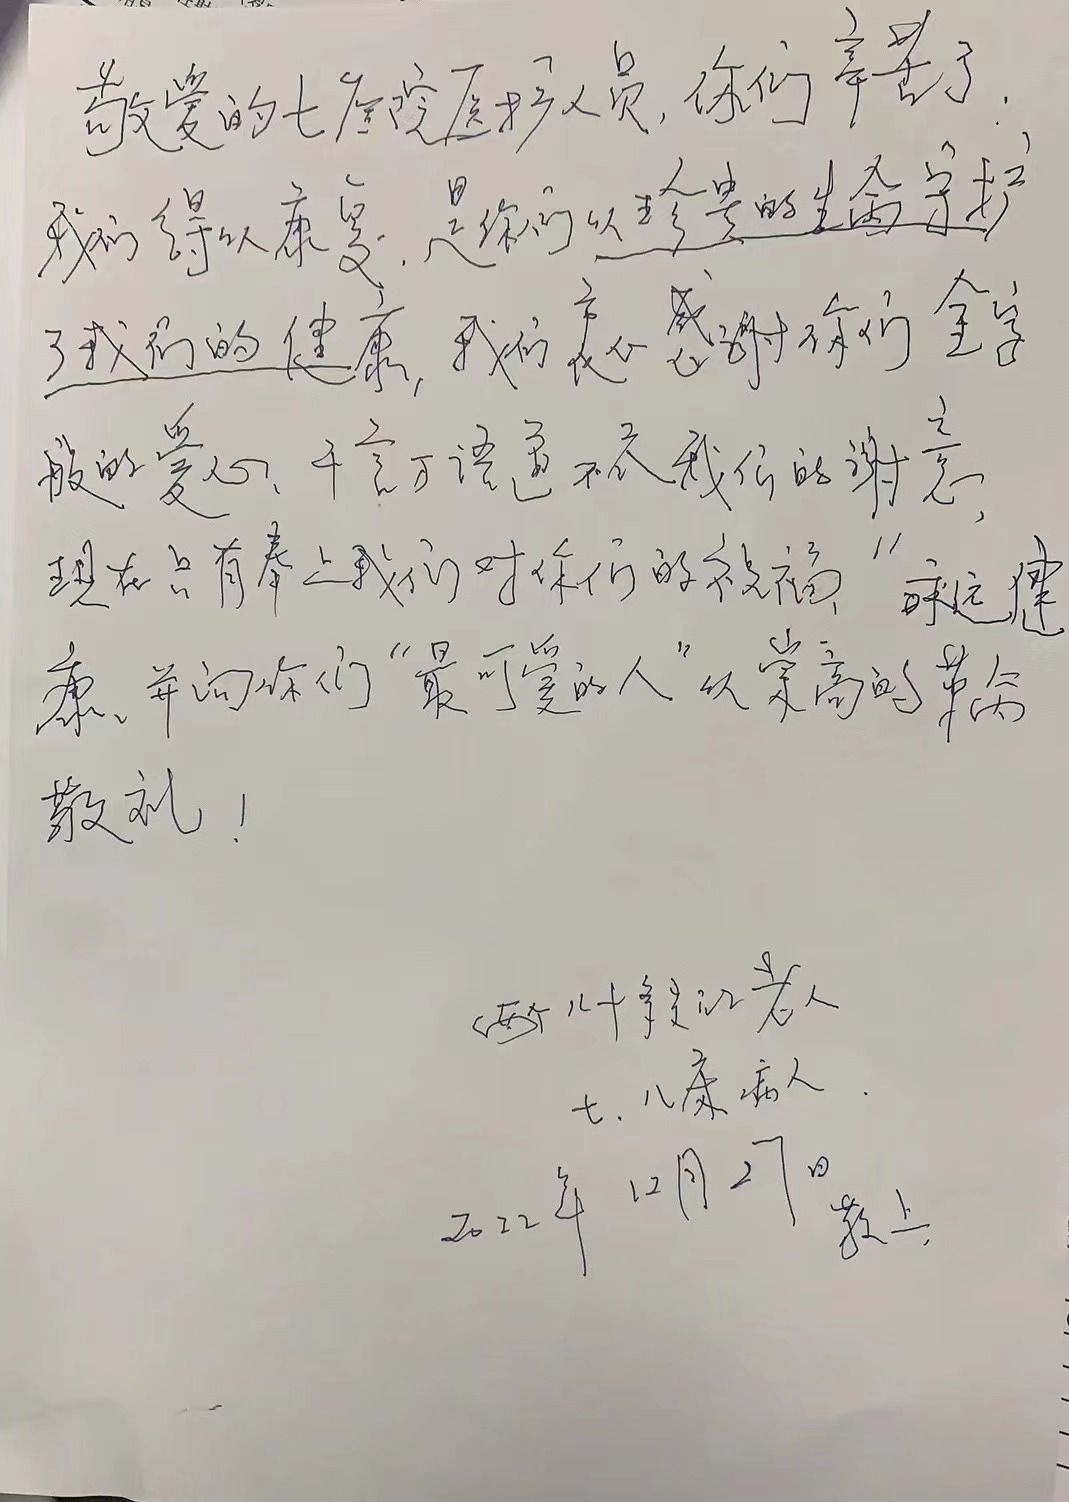 敬爱的七医院医护人员，你们辛苦了.
我们得以康复.是你们以珍贵的生命守护
了我们的健康，我们衷心感谢你们金字
般的爱心、千言万语道不尽我们的谢意，
现在只有奉上我们对你们的祝福，"永远健
康、并向你们"最可爱的人"以崇高的革命
敬礼！
两个八十多岁的老人
七.八床病人.
2022年12月27日
敬上.